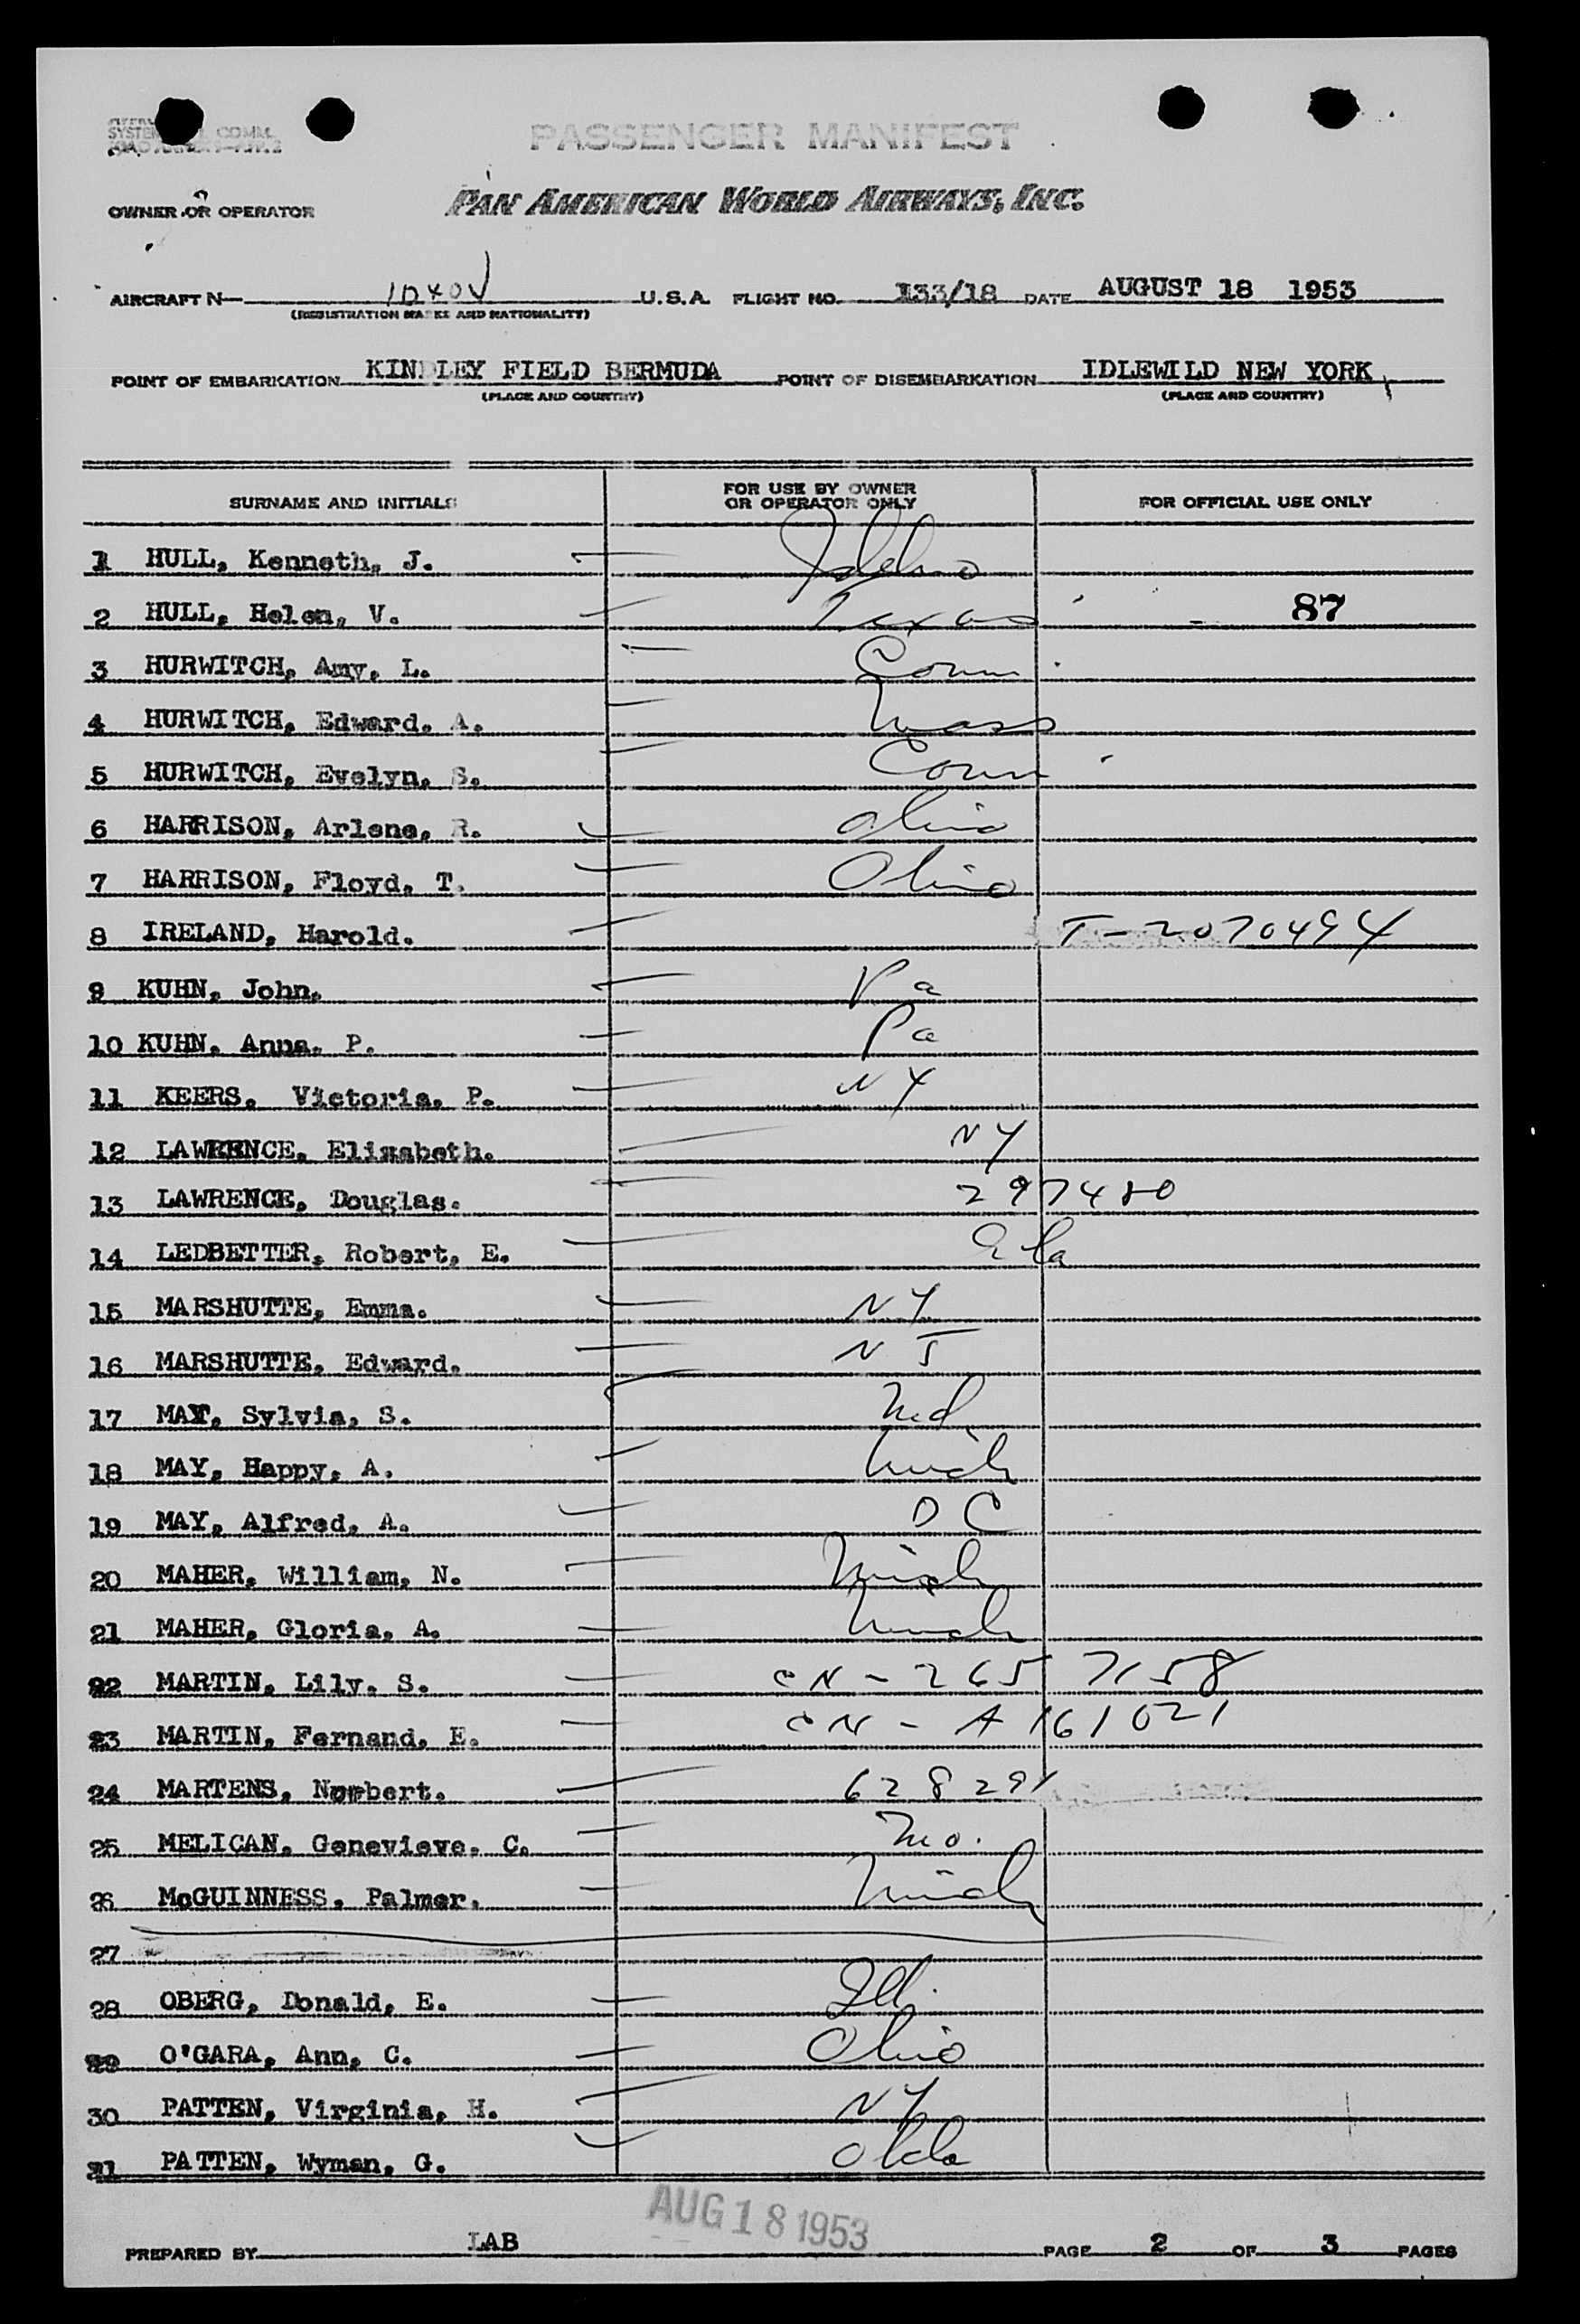 PASSENGER MANIFEST
OWNER OR OPERATOR PAN AMERICAN WORLD AIRWAYS, INC.
AIRCRAFT N— U.S.A. FLIGHT NO. 133/18 DATE AUGUST 18 1953
(REGISTRATION MARKS AND NATIONALITY)
POINT OF EMBARKATION KINDLEY FIELD BERMUDA POINT OF DISEMBARKATION IDLEWILD NEW YORK
(PLACE AND COUNTRY) (PLACE AND COUNTRY)
SURNAME AND INITIALS FOR USE BY OWNER OR OPERATOR ONLY FOR OFFICIAL USE ONLY
1 HULL, Kenneth, J. Idaho
2 HULL, Helen, V. Texas 87
3 HURWITCH, Amy, L. Conn
4 HURWITCH, Edward, A. Mass
5 HURWITCH, Evelyn, S. Conn
6 HARRISON, Arlene, R. Ohio
7 HARRISON, Floyd, T. Ohio
8 IRELAND, Harold. T-2070494
9 KUHN, John. Pa
10 KUHN, Anna, P. Pa
11 KEERS, Victoria, P. NY
12 LAWRENCE, Elizabeth. NY
13 LAWRENCE, Douglas. 297480
14 LEDBETTER, Robert, E. Ala
15 MARSHUTTE, Emma. NY
16 MARSHUTTE, Edward. NJ
17 MAY, Sylvia, S. Md
18 MAY, Happy, A. Mich
19 MAY, Alfred, A. DC
20 MAHER, William, N. Mich
21 MAHER, Gloria, A. Mich
22 MARTIN, Lily, S. CN-265 7158
23 MARTIN, Fernand, E. CN-A161021
24 MARTENS, Norbert. 628291
25 MELICAN, Genevieve, C. Mo.
26 McGUINNESS, Palmer. Mich
27
28 OBERG, Donald, E. Ill.
29 O'GARA, Ann, C. Ohio
30 PATTEN, Virginia, H. NY
31 PATTEN, Wyman, G. Okla
AUG 18 1953
PREPARED BY LAB PAGE 2 OF 3 PAGES